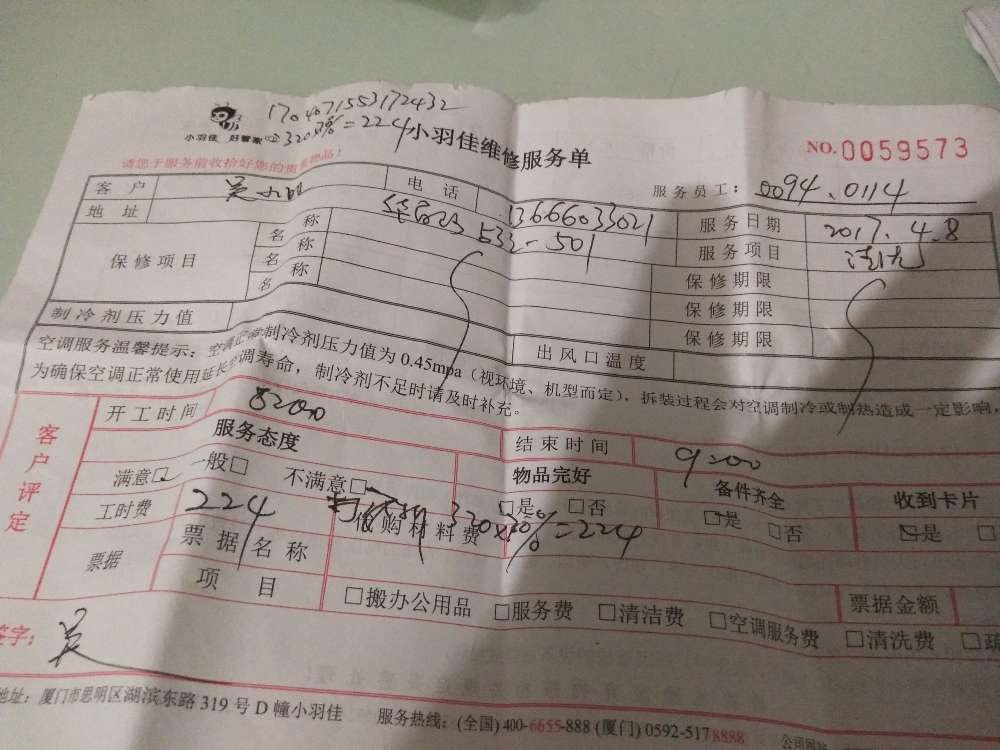 170407155317 2432
320x7%=224
小羽佳 好管家
小羽佳维修服务单
NO.0059573
请您于服务前收拾好您的贵重物品!
服务员工: 0094.0114
客户 吴 电话 13666033021 服务日期 2017.4.8
地址 533-501 服务项目 清洗
保修项目 名称 保修期限
名称 保修期限
名称 保修期限
制冷剂压力值 出风口温度
空调服务温馨提示:空调正常制冷剂压力值为0.45mpa(视环境、机型而定),拆装过程会对空调制冷或制热造成一定影响,
为确保空调正常使用延长空调寿命,制冷剂不足时请及时补充。
客户评定
开工时间 8:00 结束时间 9:00
服务态度 物品完好 备件齐全 收到卡片
满意□ 一般□ 不满意□ □是 □否 □是 □否 □是 □
工时费 224 代购材料费 320x70%=224
票据 票据名称
项目 □搬办公用品 □服务费 □清洁费 □空调服务费 □清洗费 □疏
票据金额
签字: 吴
地址:厦门市思明区湖滨东路319号D幢小羽佳 服务热线:(全国)400-6655-888 (厦门)0592-5178888